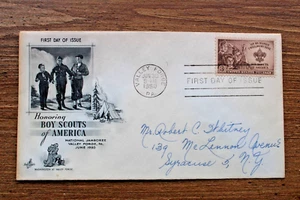 FIRST DAY OF ISSUE
VALLEY FORGE
JUN 30
1950
PA.
FIRST DAY OF ISSUE
Honoring
BOY SCOUTS
of AMERICA
NATIONAL JAMBOREE
VALLEY FORGE, PA.
JUNE 1950
Mr. Robert C. Whitney
139 McLennon Avenue
Syracuse N.Y.